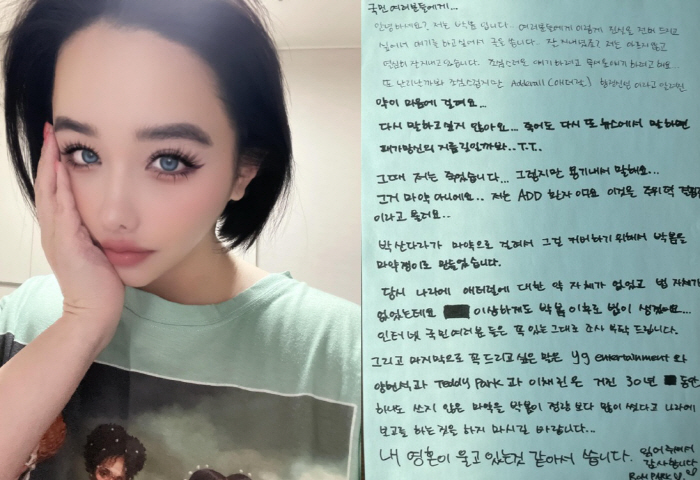 국민 여러분들에게...
안녕하세요? 저는 박봄 입니다.. 여러분들에게 이렇게 진실을 전해 드리고
싶어서 얘기를 하고싶어서 글을 씁니다. 잘 지내셨죠? 저는 아프지않고
열심히 잘지내고있습니다. 조심스러운 얘기하려고
또 난리난까봐 조심스럽지만 Adderall (애더럴)
약이 마음에 걸려요...
다시 말하고싶지 않아요... 죽어도 다시 또 뉴스에서 말하면
패가망신의 지름길일까봐.. T.T.
그때 저는 죽었습니다... 그렇지만 용기내서 말해요...
그거 마약 아니에요.. 저는 ADD 환자 이고요 이것을 주위력 결핍
이라고 불러요..
박산다라가 마약으로 걸려서 그걸 커버하기 위해서 박봄을
마약쟁이로 만들었습니다.
당시 나라에 애더럴에 대한 약 자체가 없었고 법 자체가
없었는데요 이상하게도 박봄 이후로 법이 생겼어요...
인터넷 국민여러분 들은 꼭 있는그대로 조사 부탁 드립니다.
그리고 마지막으로 꼭 드리고싶은 말은 yg entertainment 와
양현석과 Teddy Park 과 이채린은 거진 30년 동안
하나도 쓰지 않은 마약은 박봄이 정량 보다 많이 썼다고 나라에
보고를 하는것을 하지 마시길 바랍니다...
내 영혼이 울고 있는것 같아서 씁니다. 읽어주셔서
감사합니다
Bom PARK